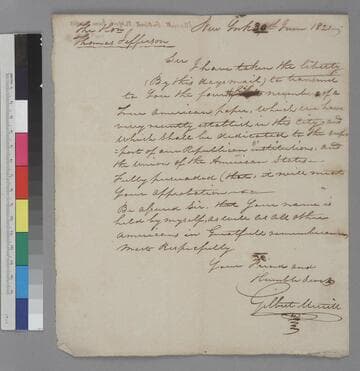 New York 30th June 182
The Hon
Thomas Jefferson
Sir
I have taken the liberty
(By this days mail) to transmit
to You the fourth number of a
True American paper, which we have
very recently establish in this City, and
which shall be dedicated to the sup-
port of our Republican institutions, and
the union of the American States—
Fully persuaded (that) it will meet
Your approbation
Be assured Sir, that Your name is
held by myself, as well as all other
Americans in Greatfull remembrance
Most Respectfully
Your Friend and
Humble Servt
Gilbert Merritt